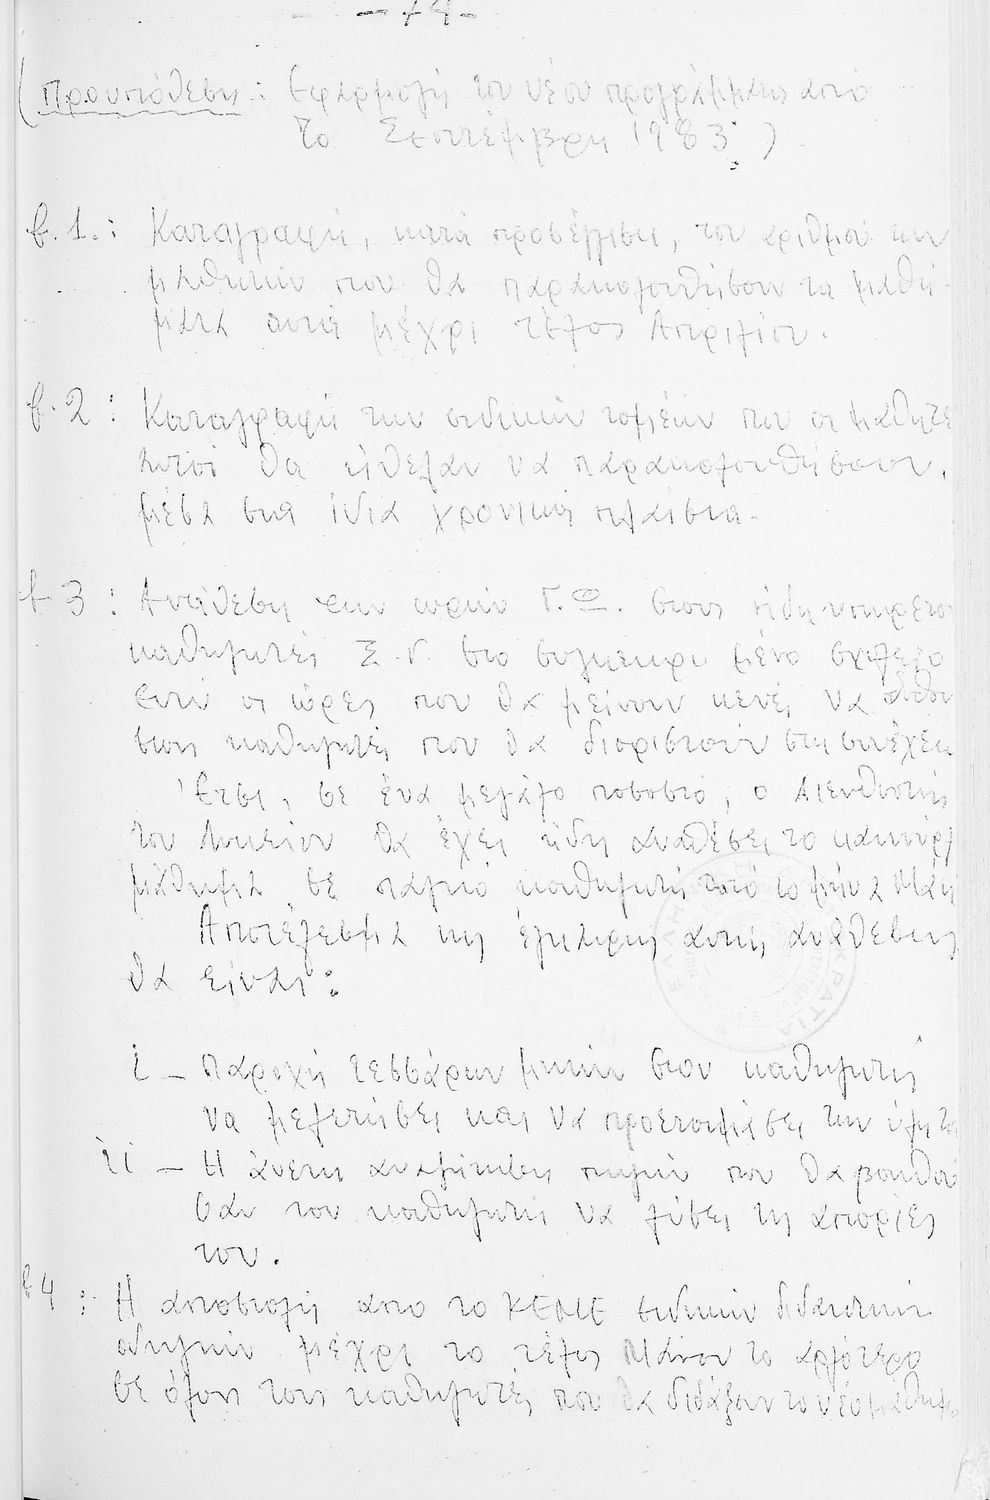 -74-
(Προυπόθεση: Εφαρμογή του νέου προγράμματος από
το Σεπτέμβρη 1983.)
β.1.: Καταγραφή, κατά προσέγγιση, του αριθμού των
μαθητών που θα παρακολουθήσουν τα μαθή-
ματα αυτά μέχρι τέλος Απριλίου.
β.2: Καταγραφή των ειδικών τομέων που οι μαθητέ
αυτοί θα ήθελαν να παρακολουθήσουν,
μέσα στα ίδια χρονικά πλαίσια.
β3: Ανάθεση των ωρών Γ.Φ. στους ήδη υπηρετο
καθηγητές Σ.Γ. στο συγκεκριμένο σχολείο
ενώ οι ώρες που θα μείνουν κενές να δοθού
στους καθηγητές που θα διοριστούν στη συνέχεια
Έτσι, σε ένα μεγάλο ποσοστό, ο Διευθυντής
του Λυκείου θα έχει ήδη αναθέσει το καινούργ
μάθημα σε πάγιο καθηγητή από το μήνα Μάη
Αποτέλεσμα της έγκαιρης αυτής ανάθεσης
θα είναι:
i - Παροχή τεσσάρων μηνών στον καθηγητή
να μελετήσει και να προετοιμάσει την ύλη το
ii - Η άνετη αναζήτηση πηγών που θα βοηθού
σαν τον καθηγητή να λύσει τις απορίες
του.
β4: Η αποστολή απο το ΚΕΜΕ ειδικών διδακτικών
οδηγιών μέχρι το τέλος Μάιου το αργότερο
σε όλους τους καθηγητές που θα διδάξουν το νέο μάθημα
ΕΛΛΗΝΙΚΗ ΔΗΜΟΚΡΑΤΙΑ